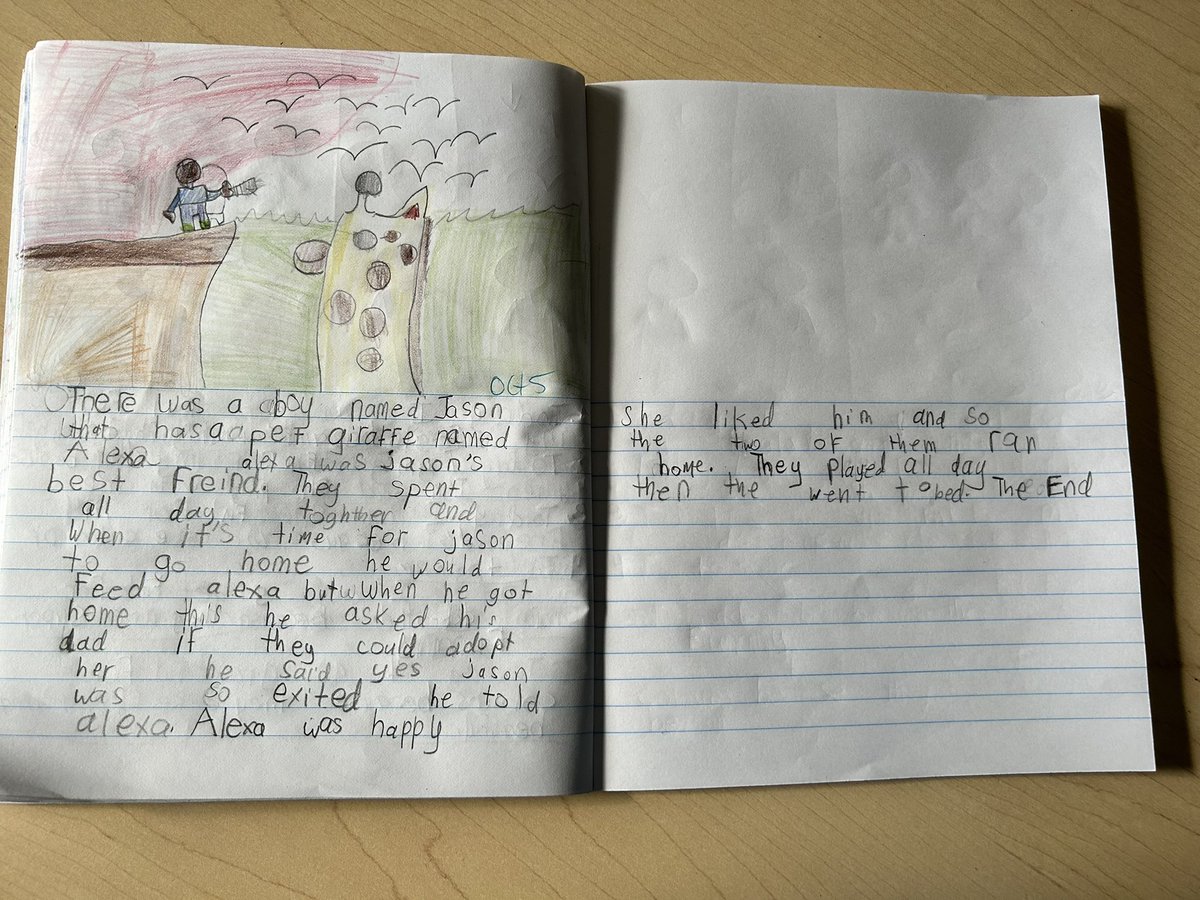 Oct 5
There was a boy named Jason
that has a pet giraffe named
Alexa alexa was Jason's
best Freind. They spent
all day toghther and
When it's time for jason
to go home he would
Feed alexa but when he got
home this he asked his
dad if they could adopt
her he said yes jason
was so exited he told
alexa. Alexa was happy
She liked him and so
the two of them ran
home. They played all day
then the went to bed. The End